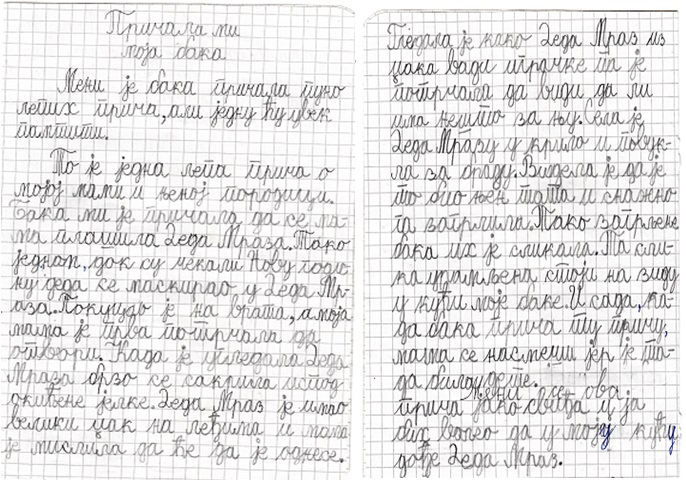 Причала ми
моја бака
Мени је бака причала пуно
лепих прича, али једну ћу увек
памтити.
То је једна лепа прича о
мојој мами и њеној породици.
Бака ми је причала да се ма-
ма плашила Деда Мраза. Тако
једном, док су чекали Нову годи-
ну деда се маскирао у Деда Мр-
аза. Покуцао је на врата, а моја
мама је прва потрчала да
отвори. Када је угледала Деда
Мраза брзо се сакрила испод
окићене јелке. Деда Мраз је имао
велики џак на леђима и мама
је мислила да ће да је однесе.
Гледала је како Деда Мраз из
џака вади играчке па је
потрчала да види да ли
има нешто за њу. Села је
Деда Мразу у крило и повук-
ла за браду. Видела је да је
то био њен тата и снажно
га загрлила. Тако загрљене
бака их је сликала. Та сли-
ка урамљена стоји на зиду
у кући моје баке. И сада, ка-
да бака прича ту причу,
мама се насмеши јер је та-
да била дете.
Мени се ова
прича јако свиђа и ја
бих волео да у моју кућу
дође Деда Мраз.